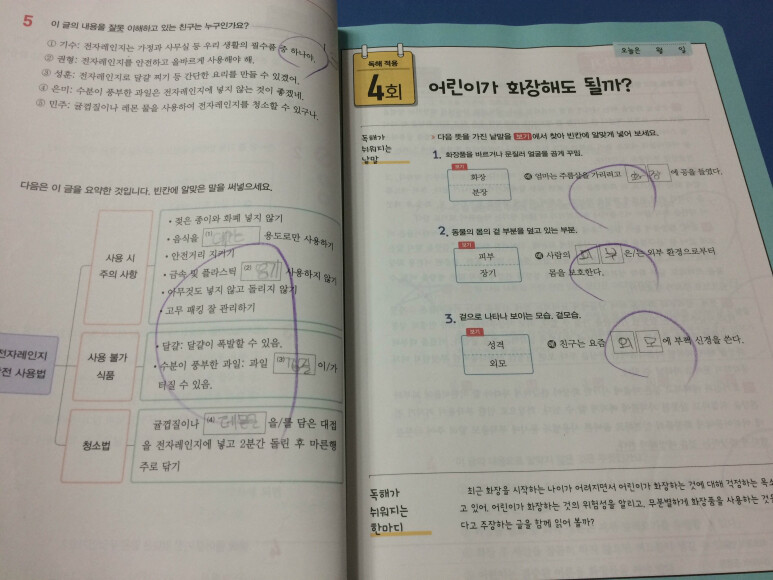 5 이 글의 내용을 잘못 이해하고 있는 친구는 누구인가요?
① 기수: 전자레인지는 가정과 사무실 등 우리 생활의 필수품 중 하나야.
② 권형: 전자레인지를 안전하고 올바르게 사용해야 해.
③ 성훈: 전자레인지로 달걀 찌기 등 간단한 요리를 만들 수 있겠어.
④ 은미: 수분이 풍부한 과일은 전자레인지에 넣지 않는 것이 좋겠네.
⑤ 민주: 귤껍질이나 레몬 물을 사용하여 전자레인지를 청소할 수 있구나.
다음은 이 글을 요약한 것입니다. 빈칸에 알맞은 말을 써넣으세요.
전자레인지
안전 사용법
사용 시
주의 사항
• 젖은 종이와 화폐 넣지 않기
• 음식을 (1) 데우는 용도로만 사용하기
• 안전거리 지키기
• 금속 및 플라스틱 (2) 용기 사용하지 않기
• 아무것도 넣지 않고 돌리지 않기
• 고무 패킹 잘 관리하기
사용 불가
식품
• 달걀: 달걀이 폭발할 수 있음.
• 수분이 풍부한 과일: 과일 (3) 이/가
터질 수 있음.
청소법
귤껍질이나 (4) 레몬 을/를 담은 대접
을 전자레인지에 넣고 2분간 돌린 후 마른행
주로 닦기
오늘은 월 일
독해 적용
4회
어린이가 화장해도 될까?
독해가
쉬워지는
낱말
* 다음 뜻을 가진 낱말을 보기에서 찾아 빈칸에 알맞게 넣어 보세요.
1. 화장품을 바르거나 문질러 얼굴을 곱게 꾸밈.
보기
화장
분장
예 엄마는 주름살을 가리려고 화장에 공을 들였다.
2. 동물의 몸의 겉 부분을 덮고 있는 부분.
보기
피부
장기
예 사람의 피부은/는 외부 환경으로부터
몸을 보호한다.
3. 겉으로 나타나 보이는 모습. 겉모습.
보기
성격
외모
예 친구는 요즘 외모에 부쩍 신경을 쓴다.
독해가
쉬워지는
한마디
최근 화장을 시작하는 나이가 어려지면서 어린이가 화장하는 것에 대해 걱정하는 목소
고 있어. 어린이가 화장하는 것의 위험성을 알리고, 무분별하게 화장품을 사용하는 것을
다고 주장하는 글을 함께 읽어 볼까?